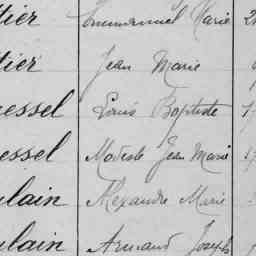 tier Emmanuel Marie 2
tier Jean Marie
essel Louis Baptiste 1
essel Modeste Jean Marie 1
ulain Alexandre Marie
ulain Armand Joseph